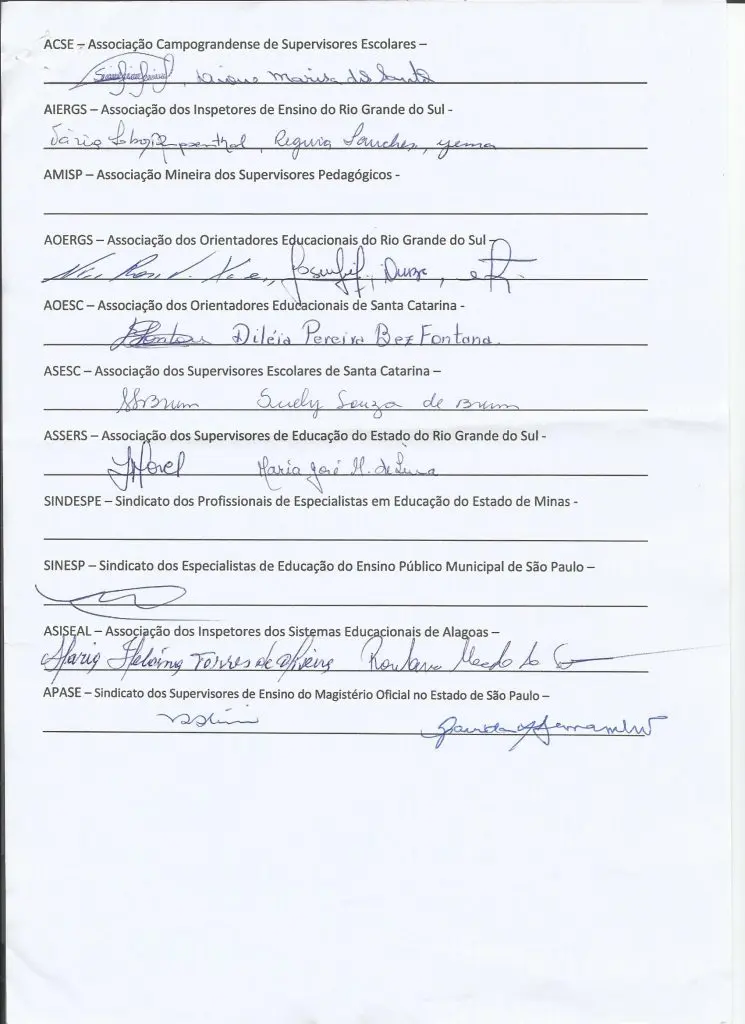 ACSE – Associação Campograndense de Supervisores Escolares –
AIERGS – Associação dos Inspetores de Ensino do Rio Grande do Sul -
Regina Sanches,
AMISP – Associação Mineira dos Supervisores Pedagógicos -
AOERGS – Associação dos Orientadores Educacionais do Rio Grande do Sul –
AOESC – Associação dos Orientadores Educacionais de Santa Catarina -
Diléia Pereira Bez Fontana
ASESC – Associação dos Supervisores Escolares de Santa Catarina –
Suely Souza de Brum
ASSERS – Associação dos Supervisores de Educação do Estado do Rio Grande do Sul -
Maria José M. de Lima
SINDESPE – Sindicato dos Profissionais de Especialistas em Educação do Estado de Minas -
SINESP – Sindicato dos Especialistas de Educação do Ensino Público Municipal de São Paulo –
ASISEAL – Associação dos Inspetores dos Sistemas Educacionais de Alagoas –
Maria Heloína Torres de Oliveira
APASE – Sindicato dos Supervisores de Ensino do Magistério Oficial no Estado de São Paulo –